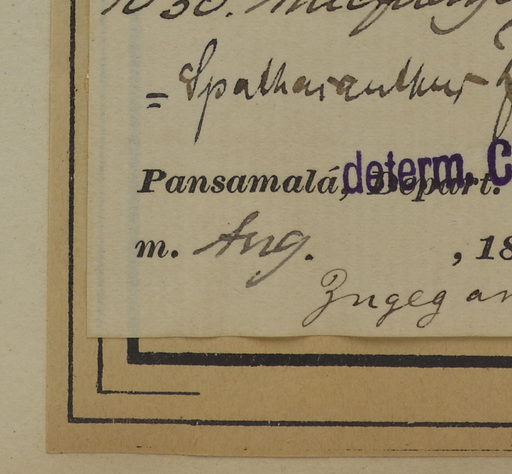 = Spathacanthus
Pansamalá, Depart.
determ. C
m. Aug. , 18
Zugegan